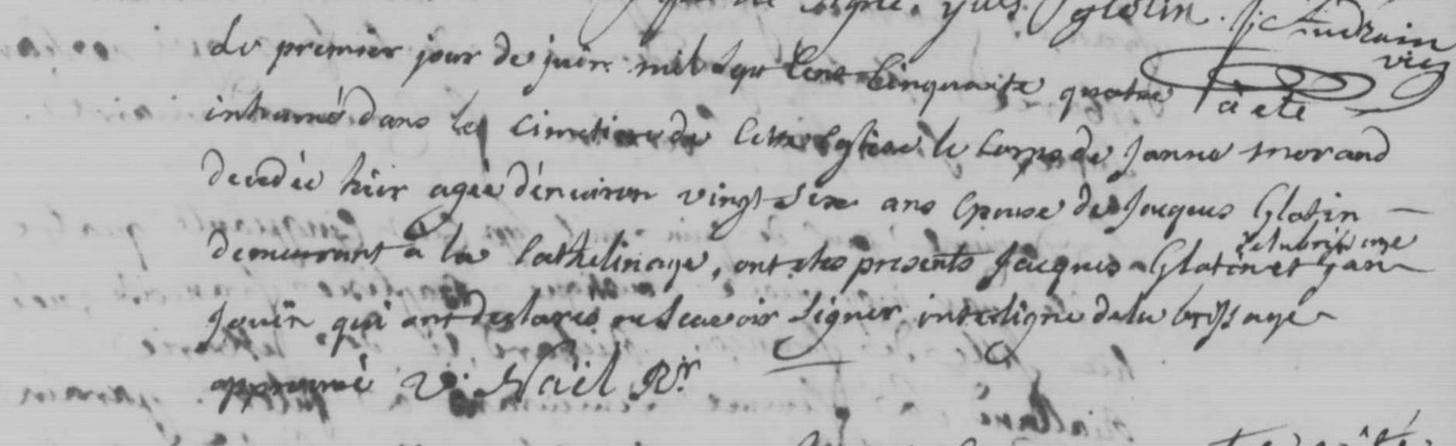 signe. yves glotin. J: Audrain
vic
Le premier jour de juin mil sept cent cinquante quatre à eté
inhumé dans le cimetiere de cette Eglise le corps de janne morand
decedée hier agée d'environ vingt six ans Epouse de jacques Glotin —
demeurant à la Cathelinaye, ont etes presents jacques Glotin et jan
de la brissaye
jouin qui ont declarés ne scavoir signer, interligne de la brissaye
approuvé v. Naël Rr